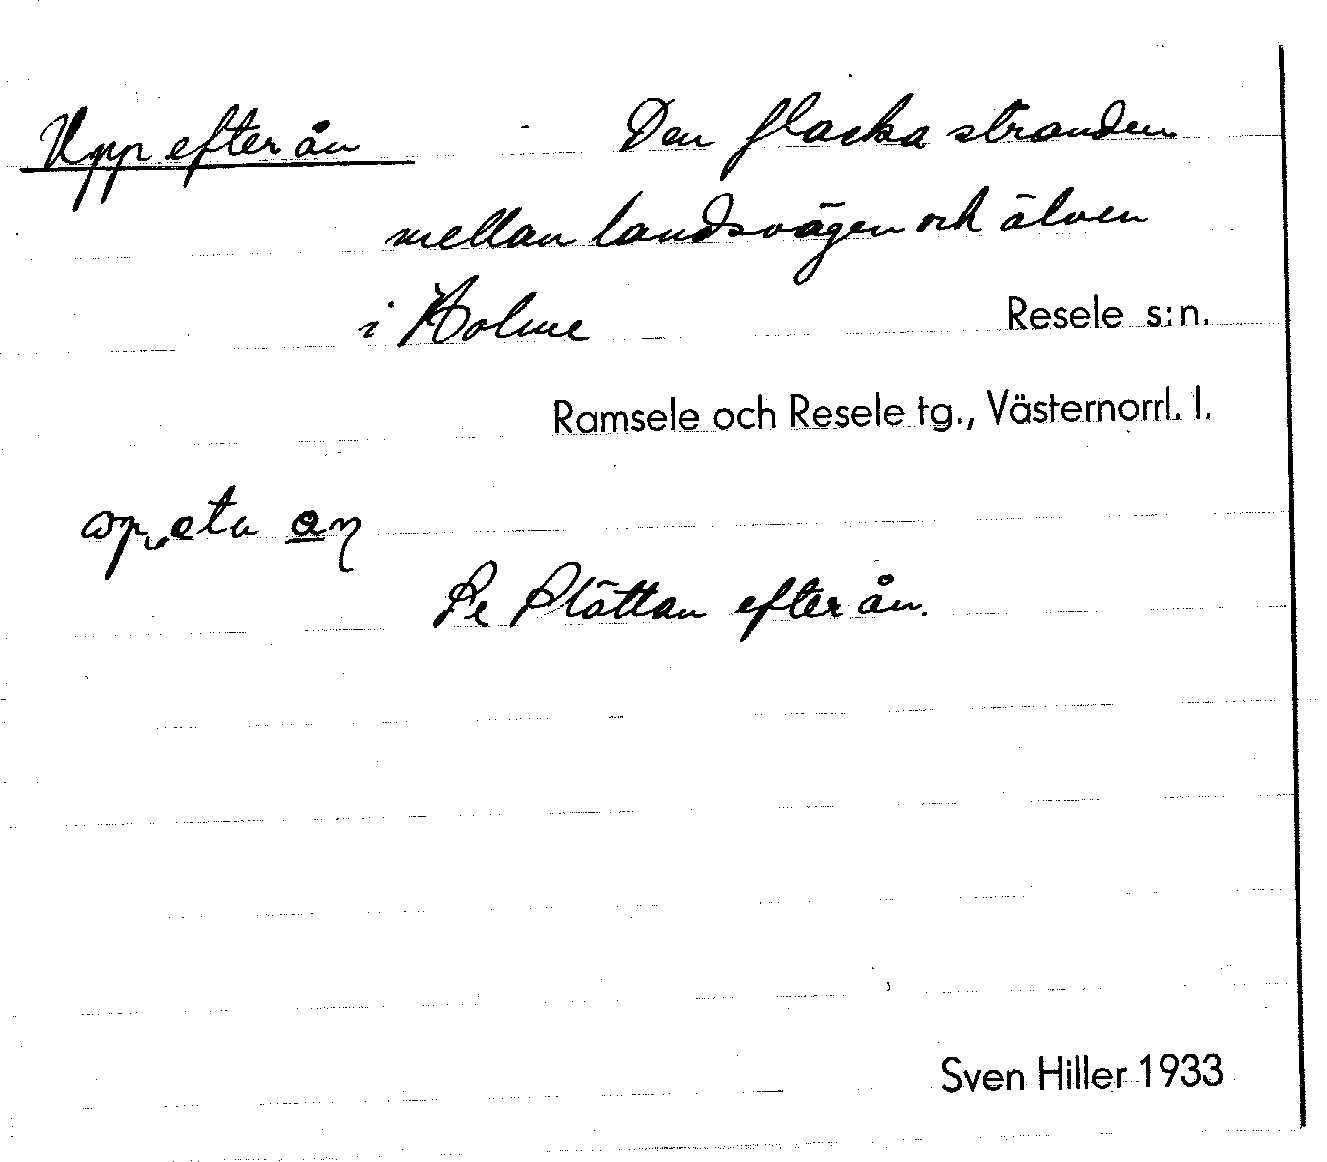 Upp efter ån Den flacka stranden
mellan landsvägen och älven
i Holme Resele s:n.
Ramsele och Resele tg., Västernorrl. l.
Se Slättan efter ån.
Sven Hiller 1933